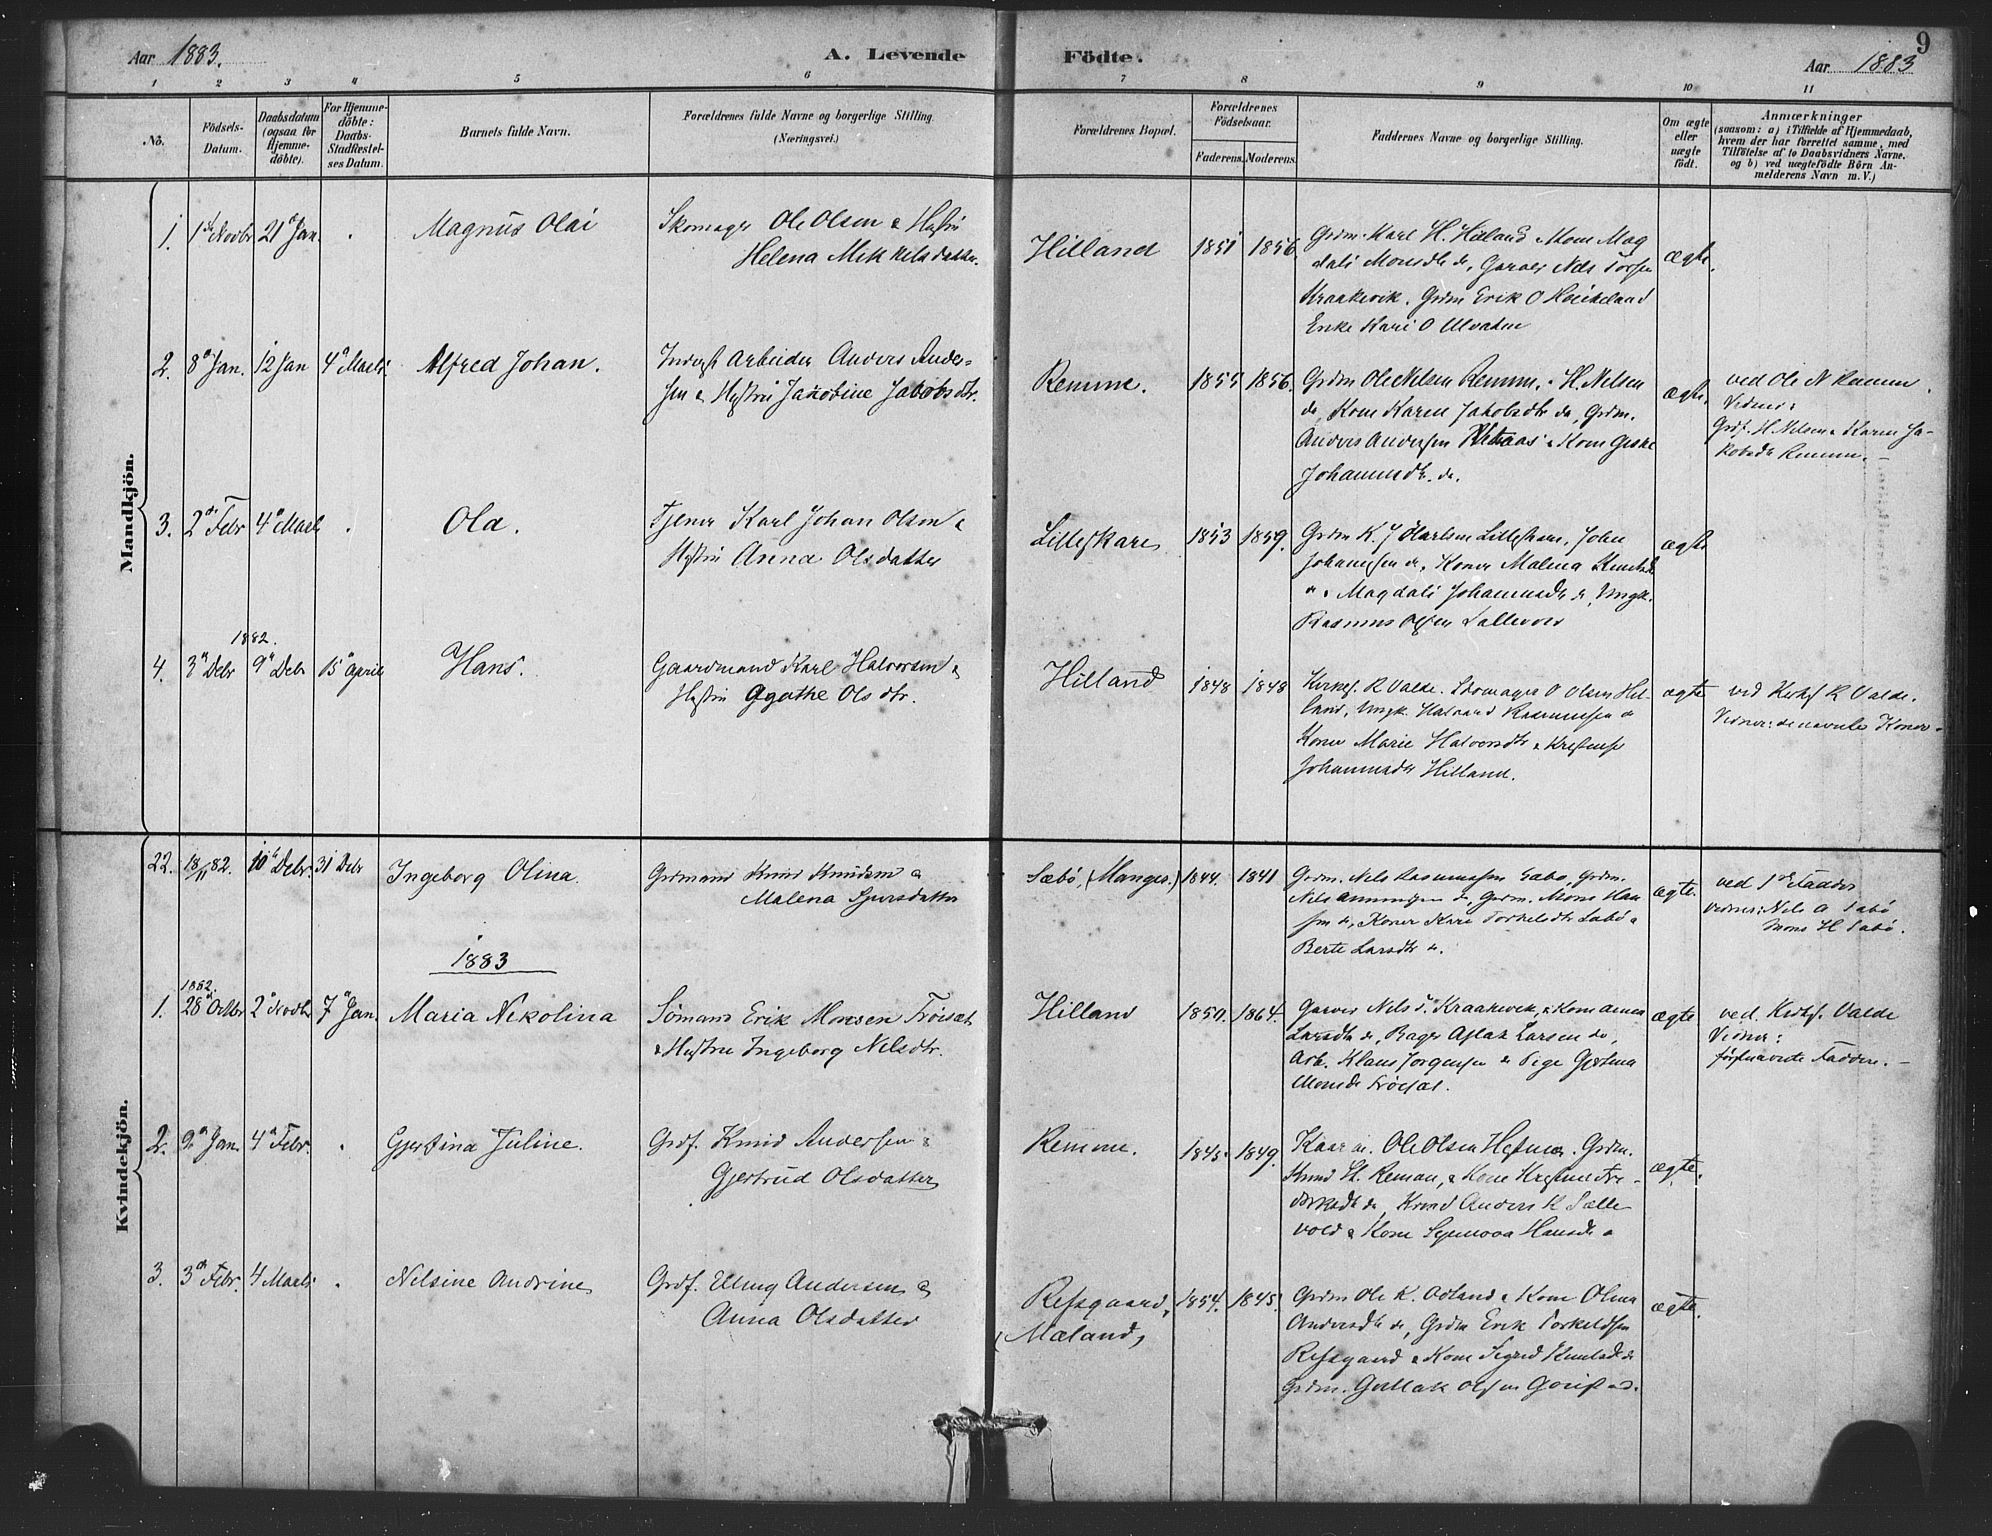 9
Aar 1883. A. Levende Födte. Aar 1883
1 2 3 4 5 6 7 8 9 10 11
No.
Födsels-
Datum.
Daabsdatum
(ogsaa for
Hjemme-
döbte).
For Hjemme-
döbte:
Daabs-
Stadfæstel-
ses Datum.
Barnets fulde Navn.
Forældrenes fulde Navne og borgerlige Stilling.
(Næringsvei.)
Forældrenes Bopæl.
Forældrenes
Födselsaar.
Faderens. Moderens.
Faddernes Navne og borgerlige Stilling.
Om ægte
eller
uægte
födt.
Anmærkninger
(saasom: a) i Tilfælde af Hjemmedaab,
hvem der har forrettet samme, med
Tilföielse af to Daabsvidners Navne.
og b) ved uægtefödte Börn An-
melderens Navn m. V.)
Mandkjön.
1. 1 Novbr 21 Jan. Magnus Olai
Skomager Ole Olsen & Hustru
Helena Mikkelsdatter.
Hilland 1851 1856.
Grdm. Karl H. Hilland Kone Mag
dali Monsdtr do, Garver Nels Torsen
Kraakevik. Grdm Erik O
Enke Kari O
ægte.
2. 8 Jan. 12 Jan 4 Marts Alfred Johan.
Inderst Arbeider Anders Ander-
sen & Hustru Jakobine Jakobsdtr.
Remme. 1855 1856.
Grdm Ole Nelsen Remm, H. Nelsen
do, Kone Karen Jakobsdtr do, Grdm.
Anders Andersen & Kone
Johannesdtr. do.
ægte.
ved Ole N Remm.
Vidner:
Grdf. H Nelsen & Karen Ja-
kobsdtr Remme.
3. 2 Febr 4 Marts Ola.
Tjener Karl Johan Olsen &
Hustru Anna Olsdatter
Lilleskare 1853 1859.
Grdm K. J Karlsen Lilleskare, John
Johannesen do, Koner Malena Knutsdr
& Magdali Johannesdtr do, Ungk.
Rasmus Olsen
ægte
4. 1882. 3 Debr 9 Debr 15 April Hans.
Gaardmand Karl Halvorsen &
Hustru Agathe Olsdtr.
Hilland 1848 1848
Kirkes. R Valde. Skomager O Olsen Hil-
land, Ungk. Rasmussen do
Koner Marie Halvorsdtr &
Johannesdtr Hilland.
ægte
ved Kirkes R Valde.
Vidner: de nævnte Koner.
Kvindekjön.
22. 18/11 82. 10 Debr. 31 Debr Ingeborg Olina.
Grdmand Knud Knudsen &
Malena Sjursdatter
Sæbö, (Manger.) 1844. 1841
Grdm. Nels Rasmussen Sabö, Grdm.
Nels do, Grdm. Mons Han
sen do, Koner Kari Torkelsdtr Sabö &
Berte Larsdtr do.
ægte.
ved 1 Fadder
Vidner: Nels A Sabö
Mons H Sabö.
1883
1882.
1. 28 Octbr 2 Novbr 7 Jan. Maria Nekolina
Sömand Erik Monsen Tröisæt
& Hustru Ingeborg Nelsdtr.
Hilland 1850. 1864.
Garver Nels T. Kraakevik, & Kone Anna
Larsdtr do, Bager Aslak Larsen do,
Arb. Klaus Jorgensen do Pige Gjertina
Monsdr Tröisæt.
ægte
ved Kirkes. Valde
Vidner:
förstnævnte Faddere.
2. 9 Jan. 4 Febr. Gjertina Juline.
Grdf. Knud Andersen &
Gjertrud Olsdatter
Remme. 1845. 1849.
Ole Olsen Grdm.
Knud Remme, & Kone
do, Knud Anders K Sælle
vold & Kone Synnova Hansdr do
ægte.
3. 3 Febr. 4 Marts Nelsine Andrine
Grdf. Elling Andersen &
Anna Olsdatter
Refsgaard,
(Mæland,
1854. 1845.
Grdm Ole K. Odland & Kone Olina
Andersdtr do, Grdm Erik Torkeldsen
Refsgaard & Kone Sigrid Knutsdr do
Grdm. Gullak Olsen
ægte.